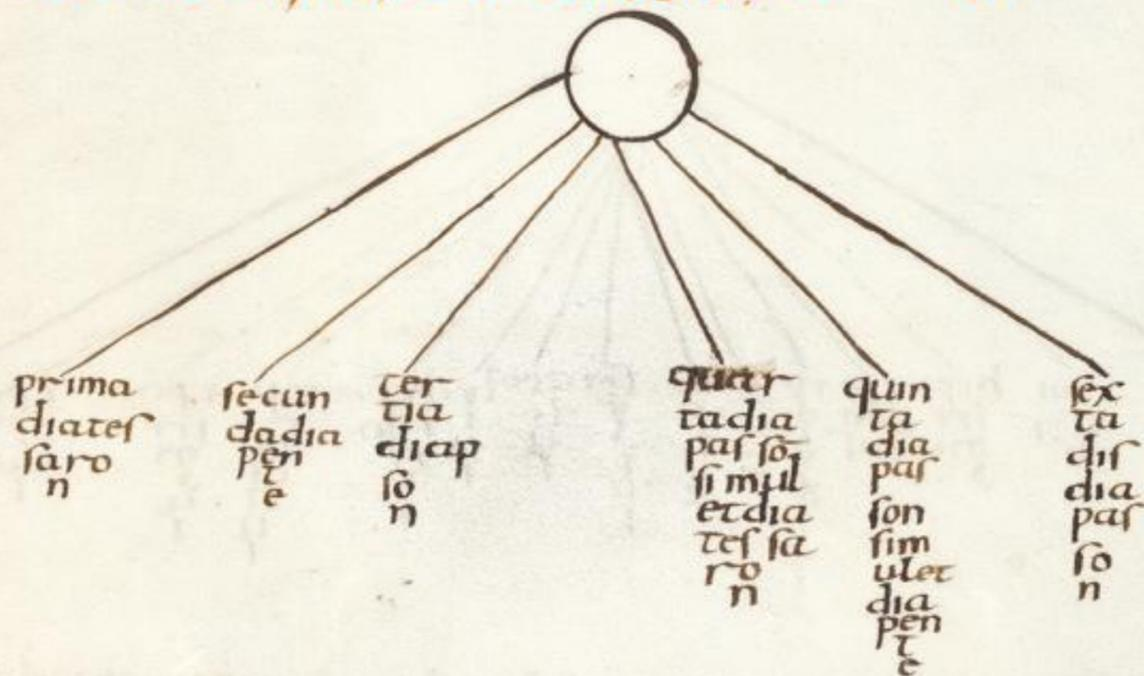 prima
diates
saro
n
secun
dadia
pen
t
e
ter
tia
diap
so
n
quar
tadia
pas sō
simul
etdia
tes sa
ro
n
quin
ta
dia
pas
son
sim
ulet
dia
pen
t
e
sex
ta
dis
dia
pas
so
n